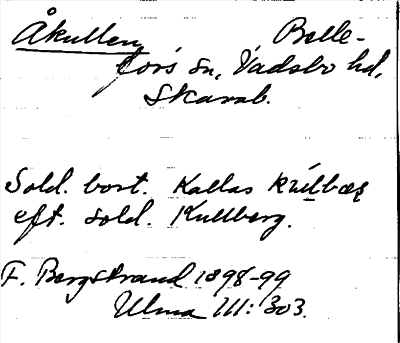 Åkullen Belle-
fors sn, Vadsbo hd,
Skarab.
Sold. bort. Kallas kúlbær
eft. sold. Kullberg.
F. Bergstrand 1898-99
Ulma III: 303.